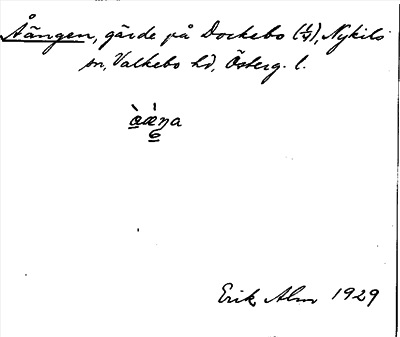 Åängen, gärde på Dockebo (1/4), Nykils
sn, Valkebo hd, Österg. l.
æ̀ǽŋa
Erik Alm 1929